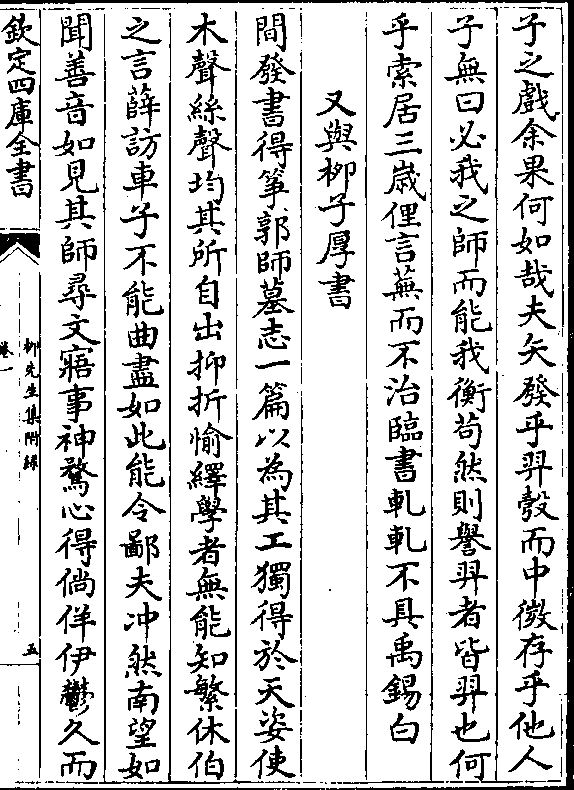 子之戲余果何如哉夫矢發乎羿彀而中微存乎他人
子無曰必我之師而能我衡苟然則譽羿者皆羿也何
乎索居三歲俚言蕪而不治臨書軋軋不具禹錫白
又與栁子厚書
間發書得箏郭師墓志一篇以為其工獨得於天姿使
木聲絲聲均其所自出抑折愉繹學者無能知繁休伯
之言薛訪車子不能曲盡如此能令鄙夫冲然南望如
聞善音如見其師尋文寤事神騖心得倘佯伊鬱久而
欽定四庫全書
柳先生集附錄
卷一
五